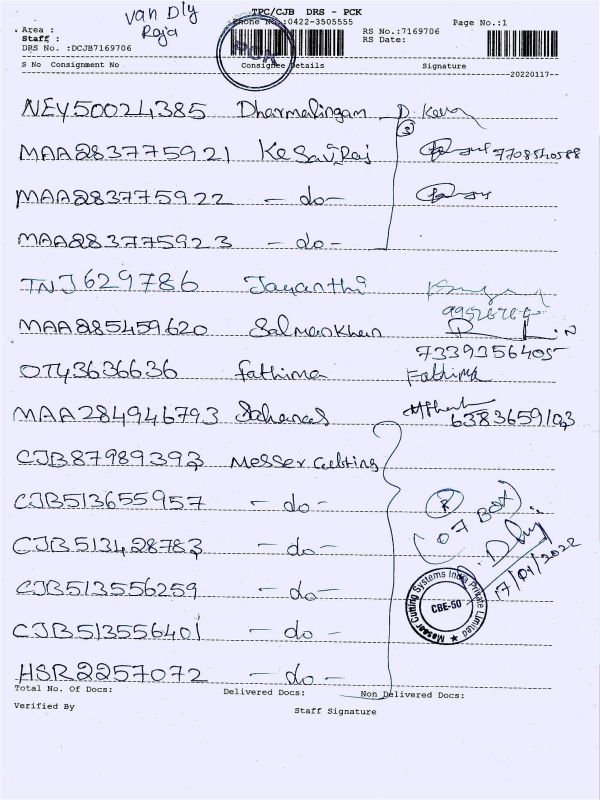 van Dly
Raja
TPC/CJB DRS - PCK
Area :
Phone No.:0422-3505555
Page No.:1
Staff :
RS No.:7169706
DRS No. :DCJB7169706
RS Date:
PCK
S No Consignment No Consignee Details Signature
20220117
NEY50024385 Dharmalingam
MAA283775921 Kesavraj 7708540588
MAA283775922 - do -
MAA283775923 - do -
TNJ629786 Jayanthi
MAA285459620 Salmankhan
7339356405
OTY3636636 fathima Fathima
MAA284946793 Sahanas
6383659103
CJB87989393 Messer Cutting
CJB513655957 - do -
R
(07 BOX)
CJB513428783 - do -
17/01/2022
CJB513556259 - do -
Messer Cutting Systems India Private Limited
CBE-50
CJB513556401 - do -
HSR2257072 - do -
Total No. Of Docs: Delivered Docs: Non Delivered Docs:
Verified By Staff Signature